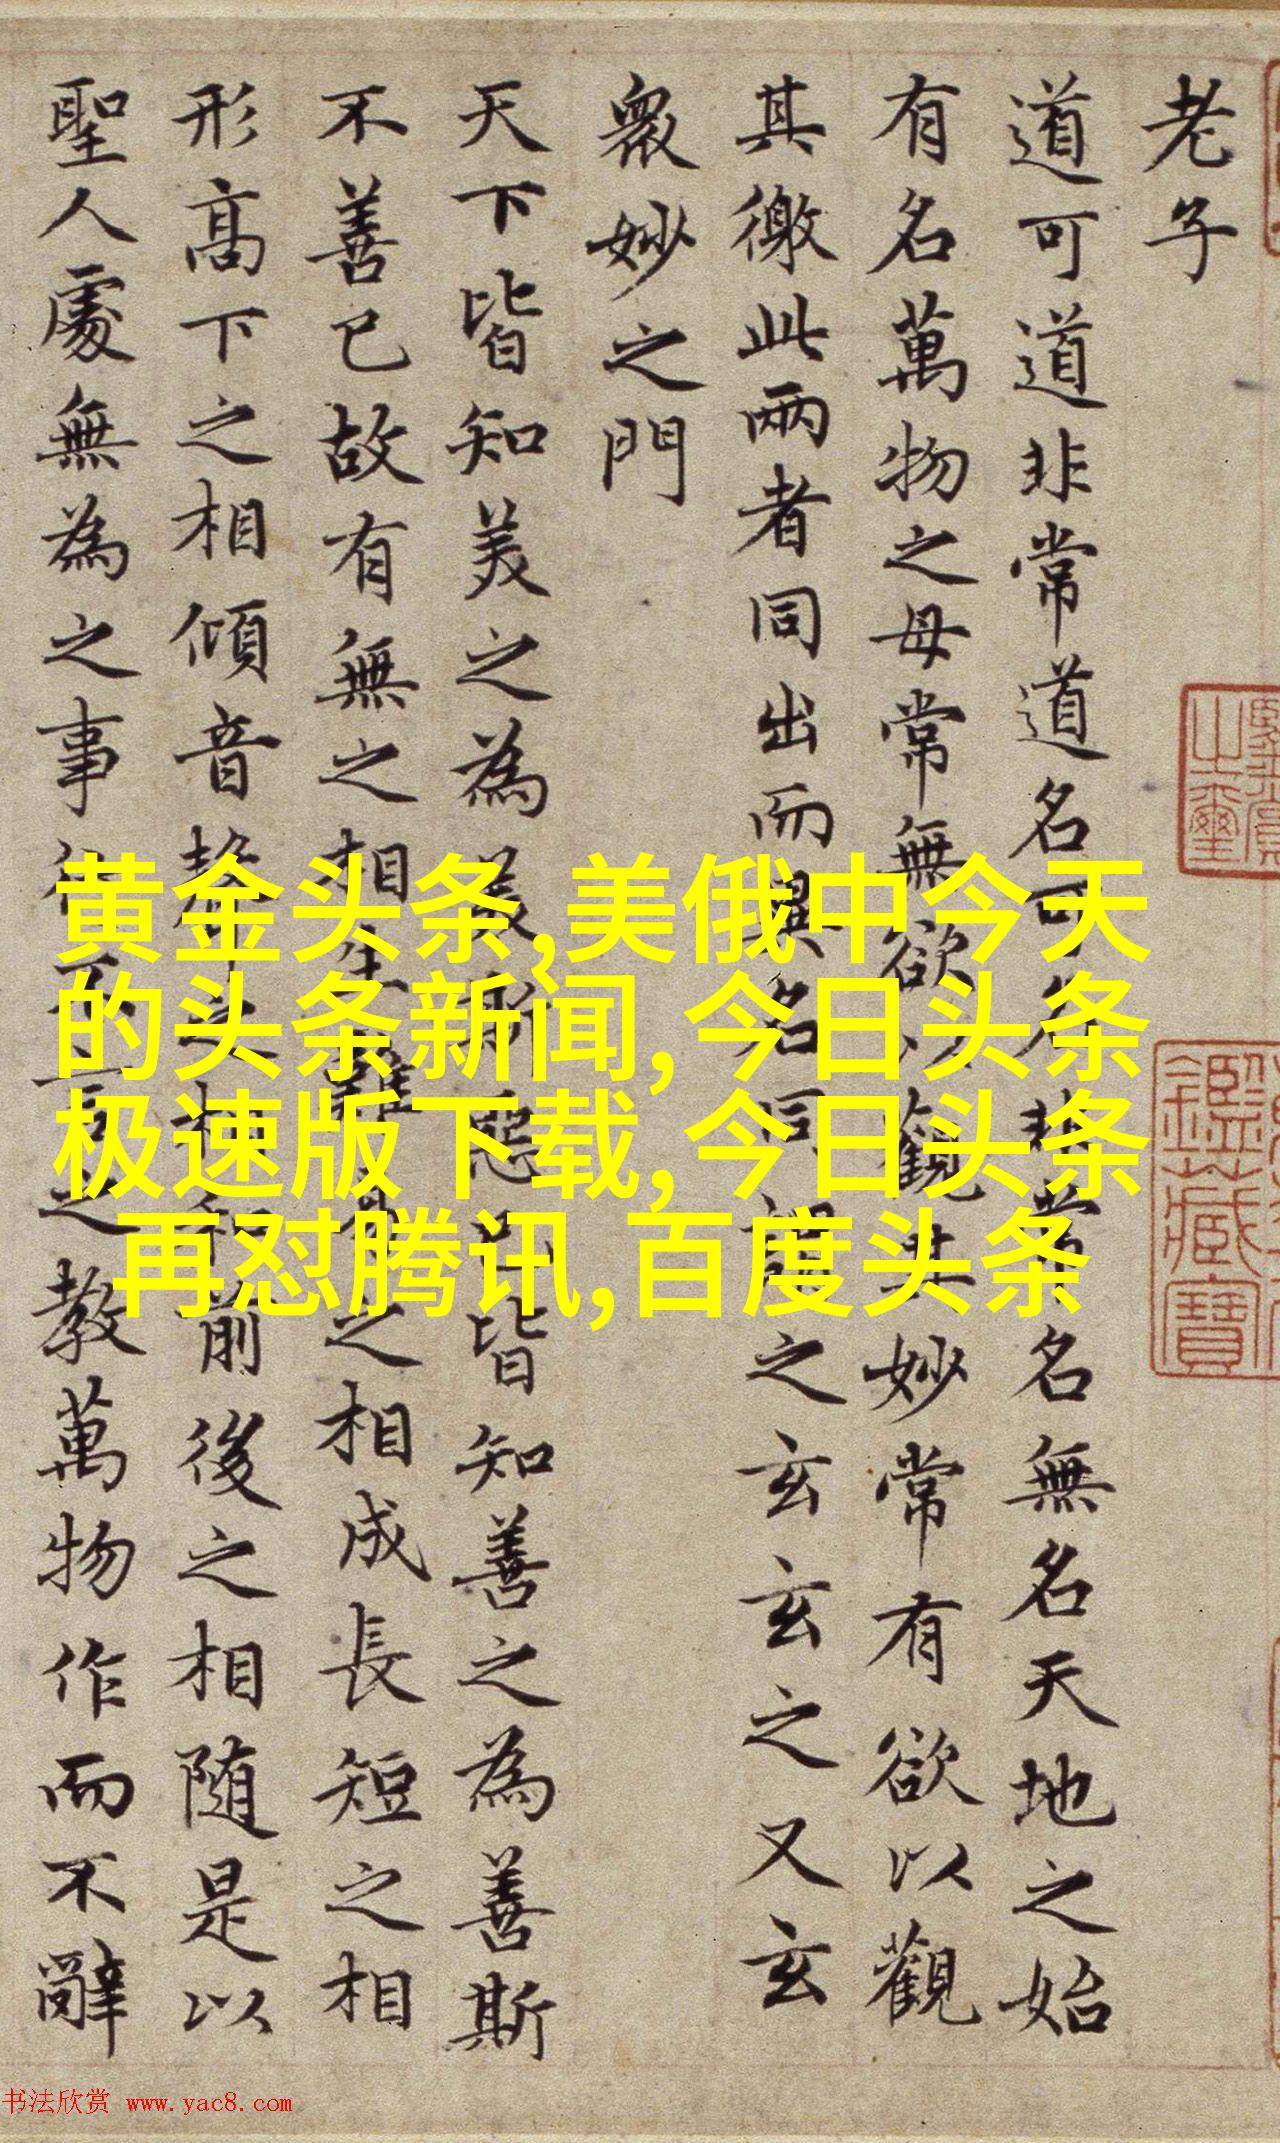 老子
道可道非常道名可名非常名無名天地之始
有名萬物之母常無欲以觀其妙常有欲以觀
其徼此兩者同出而異名同謂之玄玄之又玄
衆妙之門
天下皆知美之為美斯惡已皆知善之為善斯
不善已故有無之相生難易之相成長短之相
形高下之相傾音聲之相和前後之相随是以
聖人處無為之事行不言之教萬物作而不辭
黄金头条,美俄中今天
的头条新闻,今日头条
极速版下载,今日头条
再怼腾讯,百度头条
鑑藏寶
书法欣赏 www.yac8.com